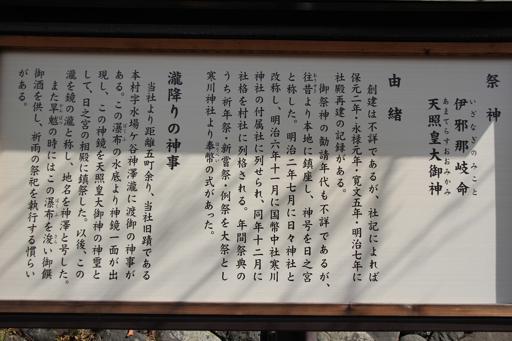 祭神
伊邪那岐命
いざなぎのみこと
天照皇大御神
あまてらすおおみかみ
由緒
創建は不詳であるが、社記によれば
保元二年・永禄元年・寛文五年・明治七年に
社殿再建の記録がある。
御祭神の勧請年代も不詳であるが、
往昔より本地に鎮座し、神号を日之宮
と称した。明治二年七月に日々神社と
改称し、明治六年十一月に国幣中社寒川
神社の付属社に列せられ、同年十二月に
社格を村社に列格される。年間祭典の
うち祈年祭・新嘗祭・例祭を大祭とし
寒川神社より奉幣の式があった。
瀧降りの神事
当社より距離五町余り、当社旧蹟である
本村字水場ヶ谷神澤瀧に渡御の神事が
ある。この瀑布の水底より神鏡一面が出
現し、この神鏡を天照皇大御神の神霊と
して、日之宮の相殿に鎮祭した。以後、この
瀧を鏡の瀧と称し、地名を神澤と号した。
また旱魃の時にはこの瀑布を浚い御饌
御酒を供し、祈雨の祭祀を執行する慣らい
がある。